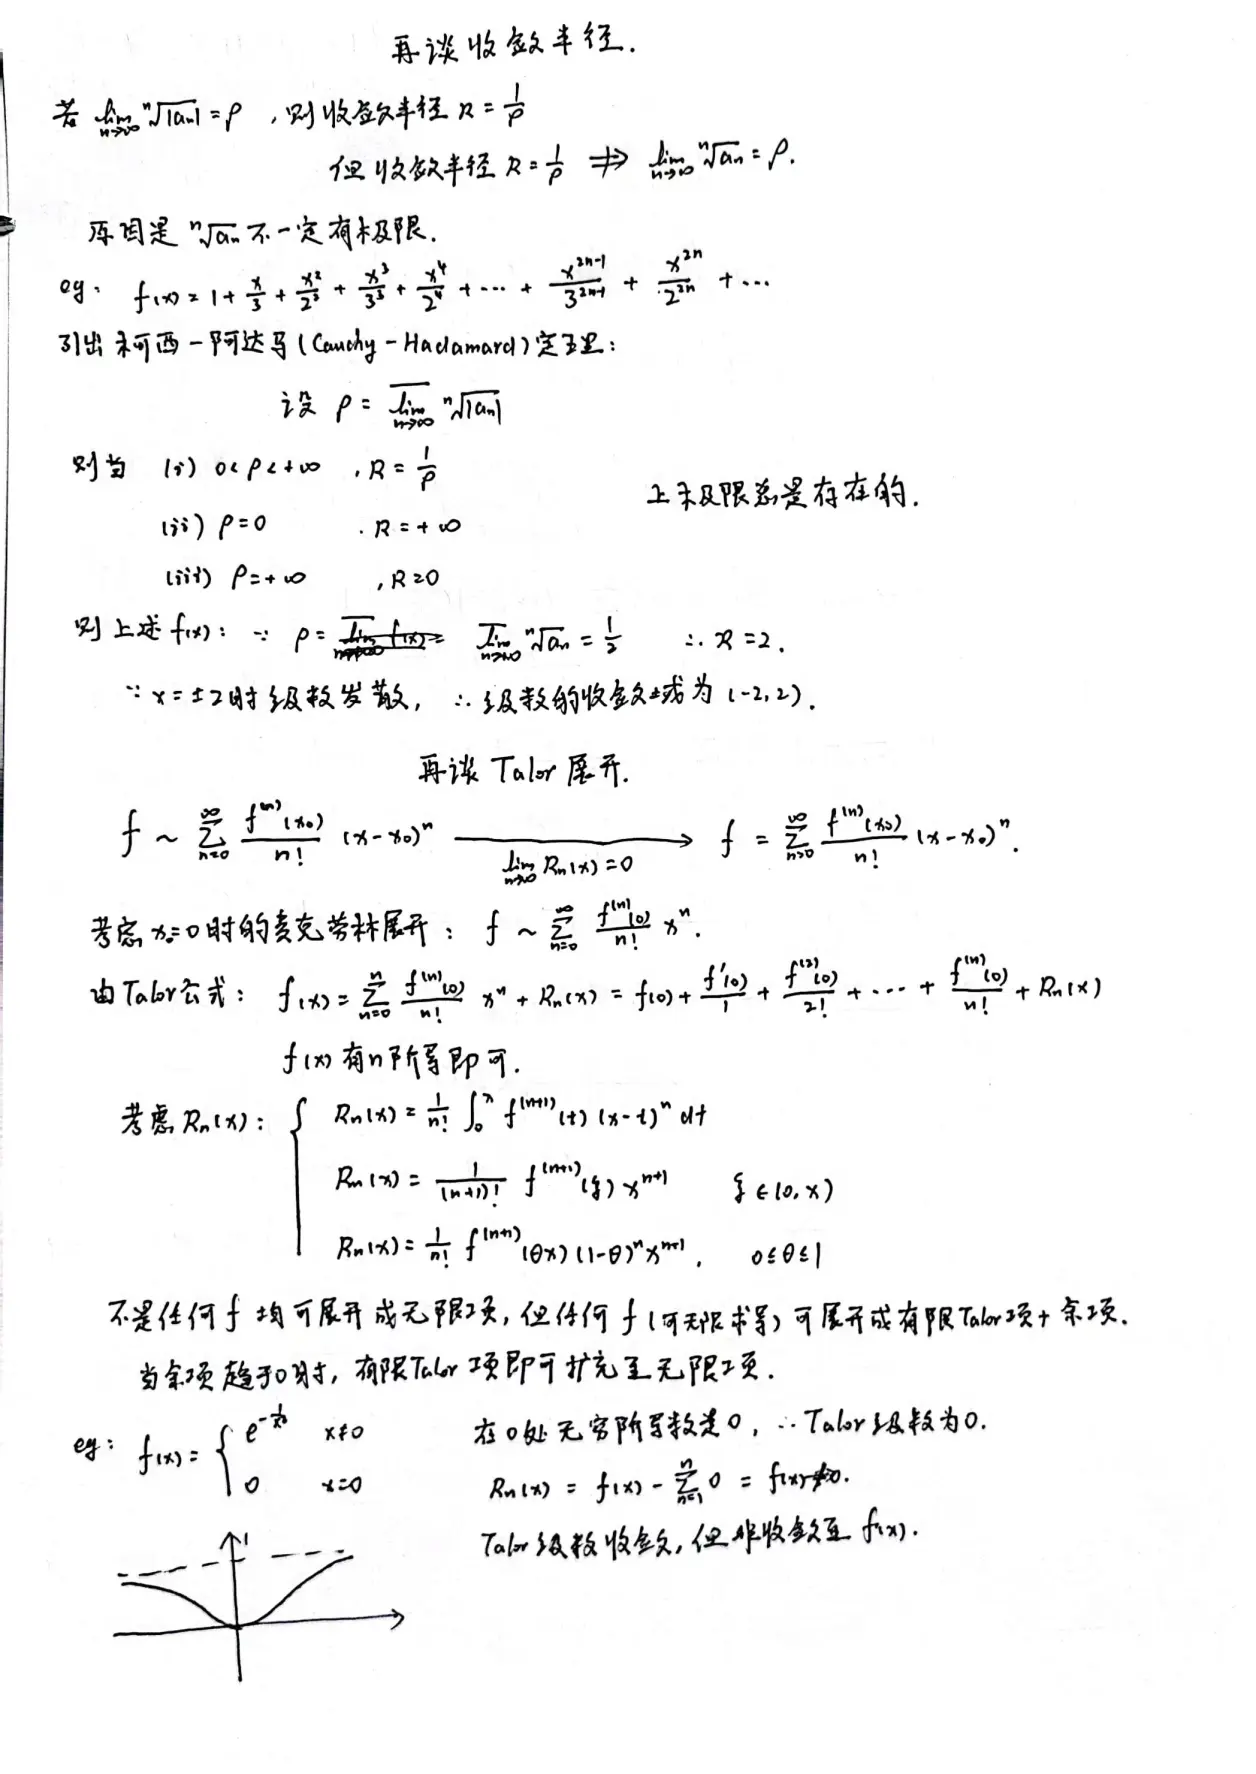 再谈收敛半径.
若 lim_{n→∞} ⁿ√|aₙ| = ρ ,则收敛半径 R = 1/ρ
但收敛半径 R = 1/ρ ⇏ lim_{n→∞} ⁿ√aₙ = ρ.
原因是 ⁿ√aₙ 不一定有极限.
eg: f(x) = 1 + x/3 + x²/2² + x³/3³ + x⁴/2⁴ + ⋯ + x^{2n-1}/3^{2n-1} + x^{2n}/2^{2n} + ⋯
引出柯西-阿达马(Cauchy-Hadamard)定理:
设 ρ = \overline{lim}_{n→∞} ⁿ√|aₙ|
则当 (i) 0<ρ<+∞ , R = 1/ρ
上极限总是存在的.
(ii) ρ=0 . R=+∞
(iii) ρ=+∞ , R=0
则上述 f(x): ∵ ρ = \overline{lim}_{n→∞} ⁿ√aₙ = 1/2 ∴ R=2.
∵ x=±2时级数发散, ∴ 级数的收敛域为 (-2,2).
再谈 Talor 展开.
f ~ ∑_{n=0}^{∞} f^{(n)}(x₀)/n! (x-x₀)ⁿ ⟶ lim_{n→∞} Rₙ(x)=0 f = ∑_{n=0}^{∞} f^{(n)}(x₀)/n! (x-x₀)ⁿ.
考虑 x₀=0时的麦克劳林展开: f ~ ∑_{n=0}^{∞} f^{(n)}(0)/n! xⁿ.
由Talor公式: f(x) = ∑_{n=0}^{n} f^{(n)}(0)/n! xⁿ + Rₙ(x) = f(0) + f'(0)/1 + f^{(2)}(0)/2! + ⋯ + f^{(n)}(0)/n! + Rₙ(x)
f(x)有n阶导即可.
考虑Rₙ(x): { Rₙ(x) = 1/n! ∫₀ˣ f^{(n+1)}(t) (x-t)ⁿ dt
Rₙ(x) = 1/(n+1)! f^{(n+1)}(ξ) x^{n+1} ξ∈(0,x)
Rₙ(x) = 1/n! f^{(n+1)}(θx) (1-θ)ⁿ x^{n+1}. 0≤θ≤1
不是任何 f 均可展开成无限项, 但任何 f (可无限求导) 可展开成有限Talor项+余项.
当余项趋于0时, 有限Talor项即可扩充至无限项.
eg: f(x) = { e^{-1/x²} x≠0
0 x=0
在0处无穷阶导数是0, ∴ Talor级数为0.
Rₙ(x) = f(x) - ∑_{n=1}^{n} 0 = f(x)≠0.
Talor级数收敛, 但非收敛至 f(x).
1